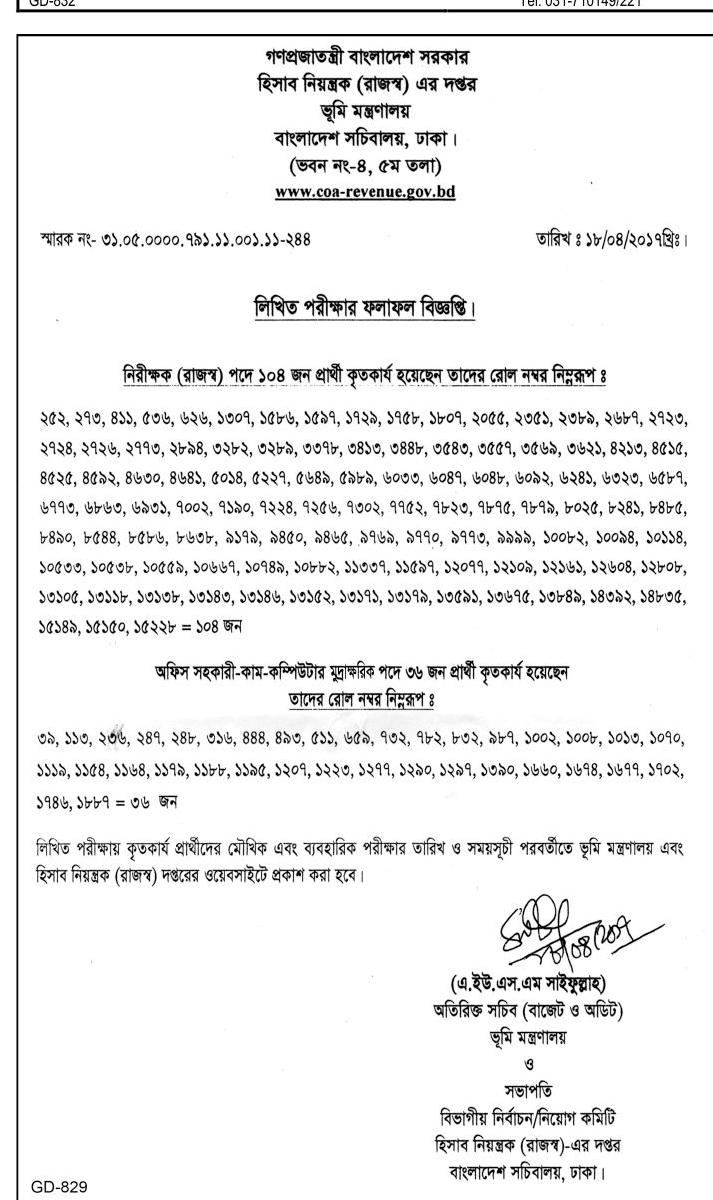 GD-832 Tel: 031-710149/221
গণপ্রজাতন্ত্রী বাংলাদেশ সরকার
হিসাব নিয়ন্ত্রক (রাজস্ব) এর দপ্তর
ভূমি মন্ত্রণালয়
বাংলাদেশ সচিবালয়, ঢাকা।
(ভবন নং-৪, ৫ম তলা)
www.coa-revenue.gov.bd
স্মারক নং- ৩১.০৫.০০০০.৭৯১.১১.০০১.১১-২৪৪ তারিখ ঃ ১৮/০৪/২০১৭খ্রিঃ।
লিখিত পরীক্ষার ফলাফল বিজ্ঞপ্তি।
নিরীক্ষক (রাজস্ব) পদে ১০৪ জন প্রার্থী কৃতকার্য হয়েছেন তাদের রোল নম্বর নিম্নরূপ ঃ
২৫২, ২৭৩, ৪১১, ৫৩৬, ৬২৬, ১৩০৭, ১৫৮৬, ১৫৯৭, ১৭২৯, ১৭৫৮, ১৮০৭, ২০৫৫, ২৩৫১, ২৩৮৯, ২৬৮৭, ২৭২৩,
২৭২৪, ২৭২৬, ২৭৭৩, ২৮৯৪, ৩২৮২, ৩২৮৯, ৩৩৭৮, ৩৪১৩, ৩৪৪৮, ৩৫৪৩, ৩৫৫৭, ৩৫৬৯, ৩৬২১, ৪২১৩, ৪৫১৫,
৪৫২৫, ৪৫৯২, ৪৬৩০, ৪৬৪১, ৫০১৪, ৫২২৭, ৫৬৪৯, ৫৯৮৯, ৬০৩৩, ৬০৪৭, ৬০৪৮, ৬০৯২, ৬২৪১, ৬৩২৩, ৬৫৮৭,
৬৭৭৩, ৬৮৬৩, ৬৯৩১, ৭০০২, ৭১৯০, ৭২২৪, ৭২৫৬, ৭৩০২, ৭৭৫২, ৭৮২৩, ৭৮৭৫, ৭৮৭৯, ৮০২৫, ৮২৪১, ৮৪৮৫,
৮৪৯০, ৮৫৪৪, ৮৫৮৬, ৮৬৩৮, ৯১৭৯, ৯৪৫০, ৯৪৬৫, ৯৭৬৯, ৯৭৭০, ৯৭৭৩, ৯৯৯৯, ১০০৮২, ১০০৯৪, ১০১১৪,
১০৫৩৩, ১০৫৩৮, ১০৫৫৯, ১০৬৬৭, ১০৭৪৯, ১০৮৮২, ১১৩৩৭, ১১৫৯৭, ১২০৭৭, ১২১০৯, ১২১৬১, ১২৬০৪, ১২৮০৮,
১৩১০৫, ১৩১১৮, ১৩১৩৮, ১৩১৪৩, ১৩১৪৬, ১৩১৫২, ১৩১৭১, ১৩১৭৯, ১৩৫৯১, ১৩৬৭৫, ১৩৮৪৯, ১৪৩৯২, ১৪৮৩৫,
১৫১৪৯, ১৫১৫০, ১৫২২৮ = ১০৪ জন
অফিস সহকারী-কাম-কম্পিউটার মুদ্রাক্ষরিক পদে ৩৬ জন প্রার্থী কৃতকার্য হয়েছেন
তাদের রোল নম্বর নিম্নরূপ ঃ
৩৯, ১১৩, ২৩৬, ২৪৭, ২৪৮, ৩১৬, ৪৪৪, ৪৯৩, ৫১১, ৬৫৯, ৭৩২, ৭৮২, ৮৩২, ৯৮৭, ১০০২, ১০০৮, ১০১৩, ১০৭০,
১১১৯, ১১৫৪, ১১৬৪, ১১৭৯, ১১৮৮, ১১৯৫, ১২০৭, ১২২৩, ১২৭৭, ১২৯০, ১২৯৭, ১৩৯০, ১৬৬০, ১৬৭৪, ১৬৭৭, ১৭০২,
১৭৪৬, ১৮৮৭ = ৩৬ জন
লিখিত পরীক্ষায় কৃতকার্য প্রার্থীদের মৌখিক এবং ব্যবহারিক পরীক্ষার তারিখ ও সময়সূচী পরবর্তীতে ভূমি মন্ত্রণালয় এবং
হিসাব নিয়ন্ত্রক (রাজস্ব) দপ্তরের ওয়েবসাইটে প্রকাশ করা হবে।
(এ.ইউ.এস.এম সাইফুল্লাহ)
অতিরিক্ত সচিব (বাজেট ও অডিট)
ভূমি মন্ত্রণালয়
ও
সভাপতি
বিভাগীয় নির্বাচন/নিয়োগ কমিটি
হিসাব নিয়ন্ত্রক (রাজস্ব)-এর দপ্তর
বাংলাদেশ সচিবালয়, ঢাকা।
GD-829